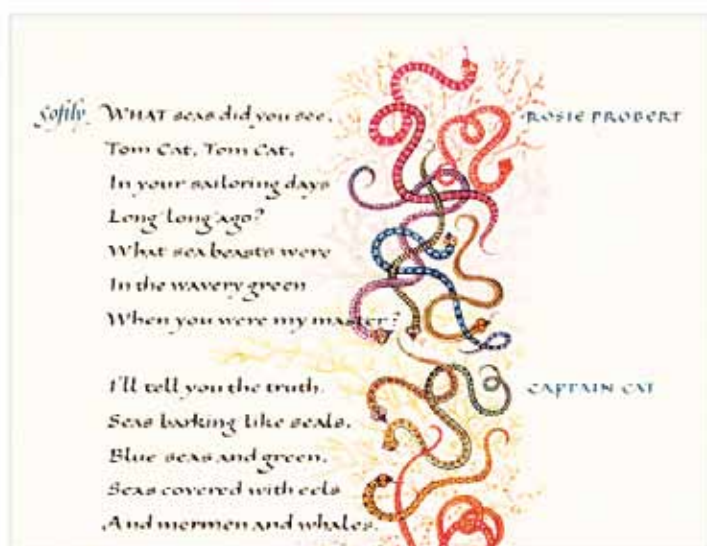 Softly WHAT seas did you see, ROSIE PROBERT
Tom Cat, Tom Cat,
In your sailoring days
Long long ago?
What sea beasts were
In the wavery green
When you were my master?
I'll tell you the truth. CAPTAIN CAT
Seas barking like seals,
Blue seas and green,
Seas covered with eels
And mermen and whales.